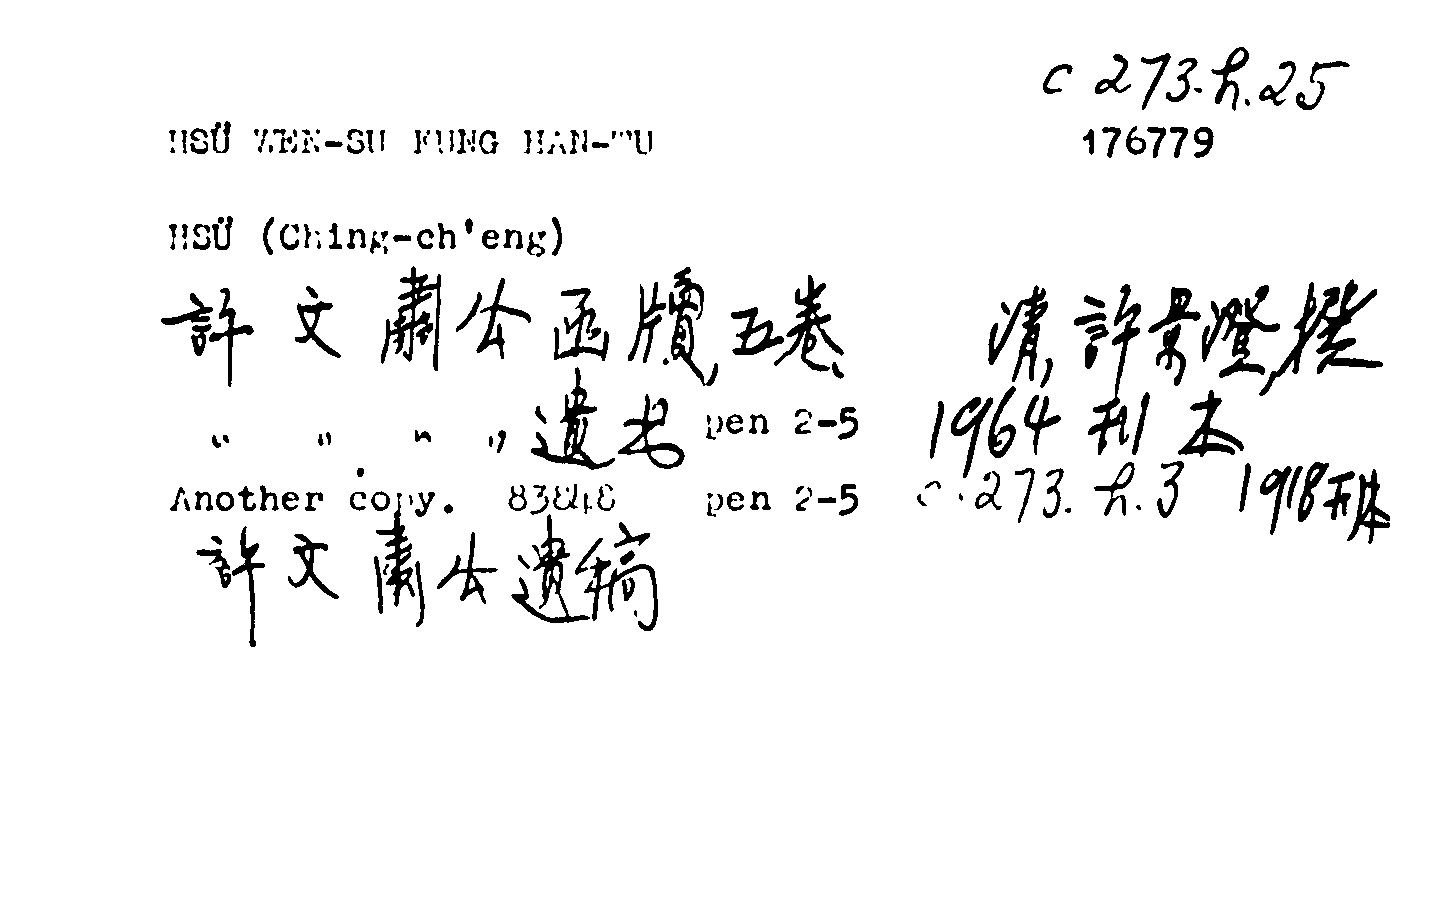 c 273.h.25
HSÜ WEN-SU KUNG HAN-TU 176779
HSÜ (Ching-ch'eng)
許文肅公函牘五卷 清許景澄撰
" " " " 遺书 pen 2-5 1964 刊本
Another copy. 83848 pen 2-5 c.273.h.3 1918刊本
許文肅公遺稿